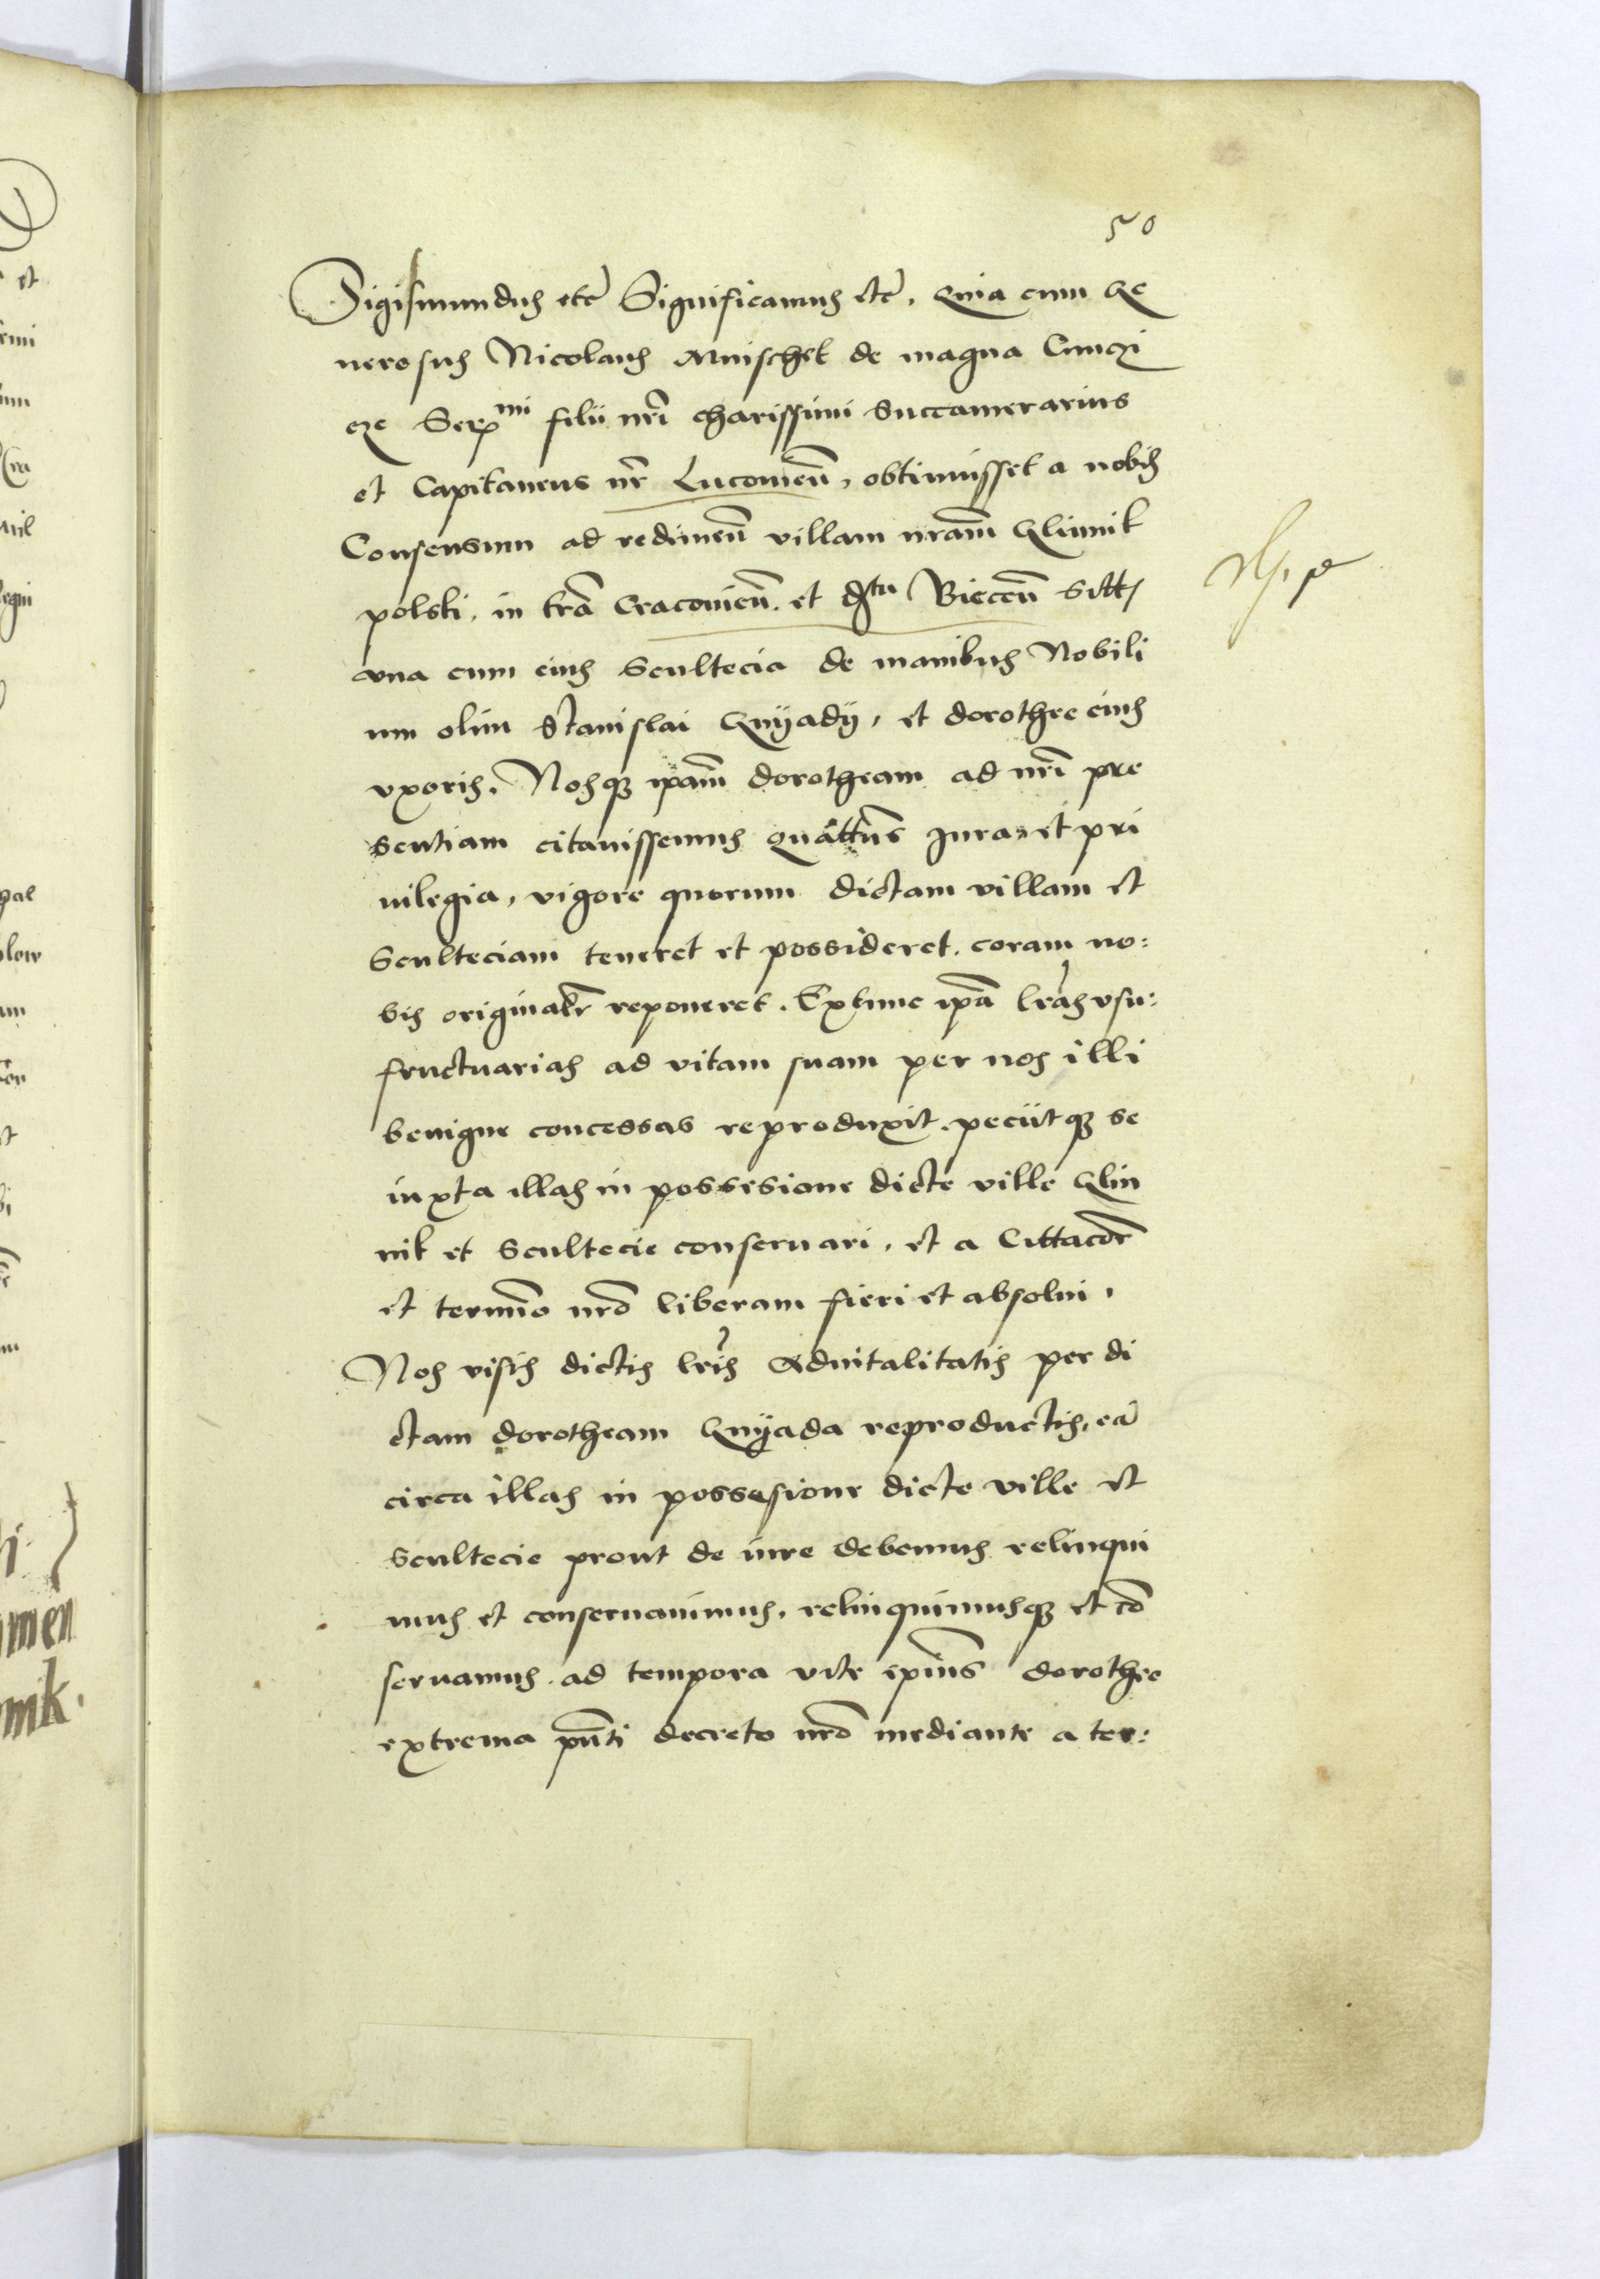 50
Sigismundus etc̃ Significamus etc̃. Quia cum Ge
nerosus Nicolaus Mnischek de magna Cunczi
cze Ser^mi filii nr̃i charissimi Succamerarius
et Capitaneus nr̃ Luconien̄, obtinuisset a nobis
Consensum ad redimen̄ villam nrām Glinnik
polski, in trā Cracovien̄. et d^tu Biecen̄ Sitt
vna cum eius Scultecia de manibus Nobili
um olim Stanislai Gnÿadÿ, et dorothee eius
vxoris. Nosqꝫ ipām dorotheam ad nr̃i pre
sentiam citauissemus quāttus Jura et pri
uilegia, vigore quorum dictam villam et
Sculteciam teneret et possideret. coram no:
bis originalr̃ reponeret. Extunc ipā lrās vsu:
fructuarias ad vitam suam per nos illi
benigne concessas reproduxit. peciitqꝫ se
iuxta illas in possesione dicte ville Glin
nik et Scultecie conseruari, et a Cittacōe
et termīo nrō liberam fieri et absolui,
Nos visis dictis lrīs Aduitalitatis per di
ctam dorotheam Gnÿada reproductis, eā
circa illas in possesione dicte ville et
Scultecie prout de iure debemus relinqui
mus et conseruauimus, relinquimusqꝫ et cō
seruamus. ad tempora vite ipīus dorothee
extrema pn̄ti decreto nrō mediante a ter: